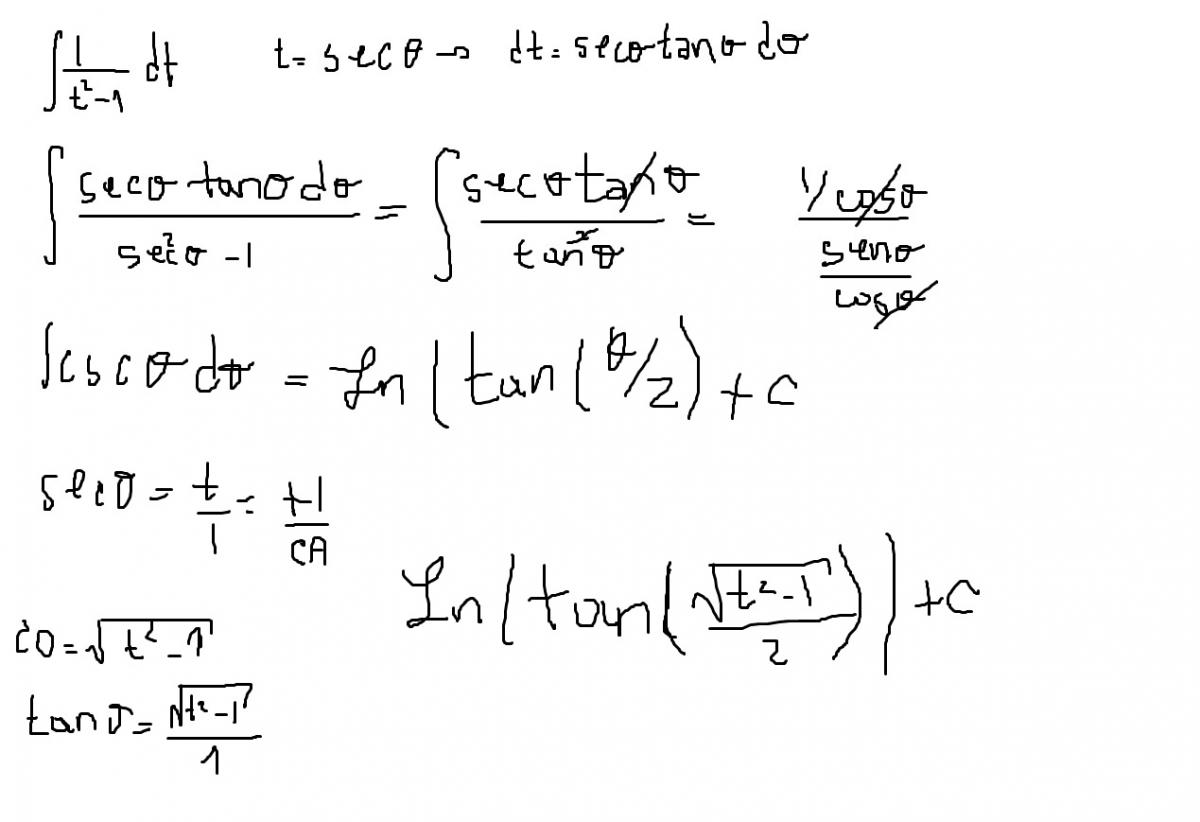 ∫ 1/(t²-1) dt   t = secθ → dt = secθ tanθ dθ
∫ secθ tanθ dθ/(sec²θ - 1) = ∫ secθ tanθ/tan²θ = (1/cosθ)/(senθ/cosθ)
∫cscθ dθ = Ln|tan(θ/2) + c
secθ = t/1 = H/CA
Ln|tan(√(t²-1)/2)| + c
CO = √(t²-1)
tanθ = √(t²-1)/1